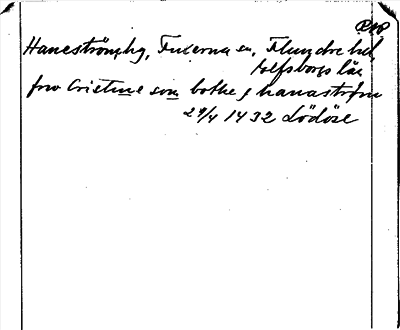 RAP
Haneström, hg, Fuxerna sn, Flundre hd,
Älfsborgs län
frw Cristine som bothe j hanastrøm
29/4 1432 Lödöse